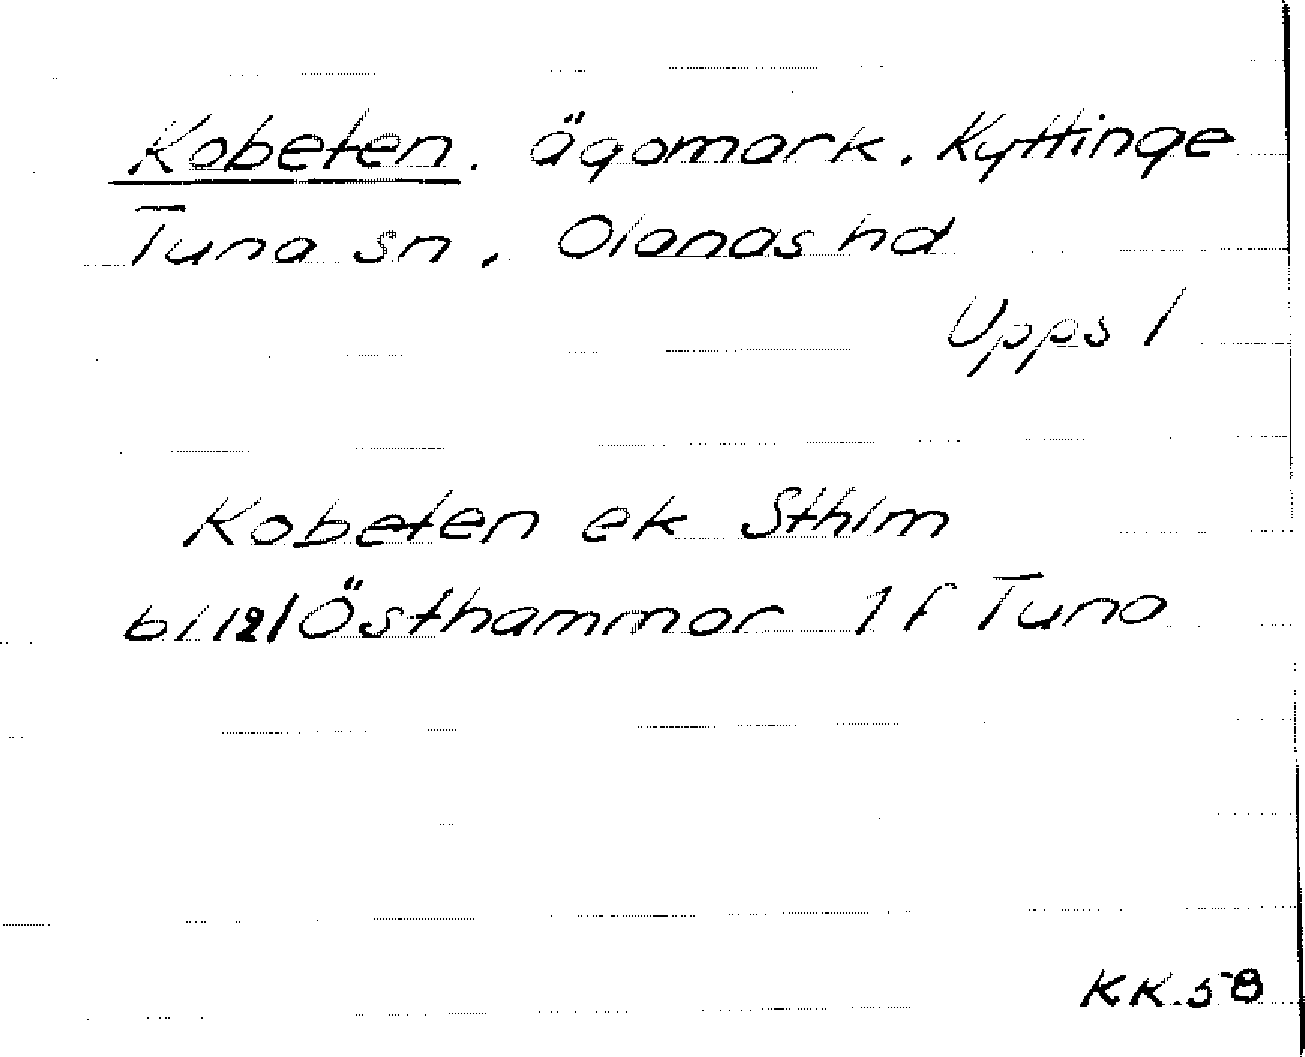 Kobeten. ägomark. Kyttinge
Tuna sn, Olands hd
Upps l
Kobeten ek Sthlm
bl 121 Östhammar 1 f Tuna
KK.58